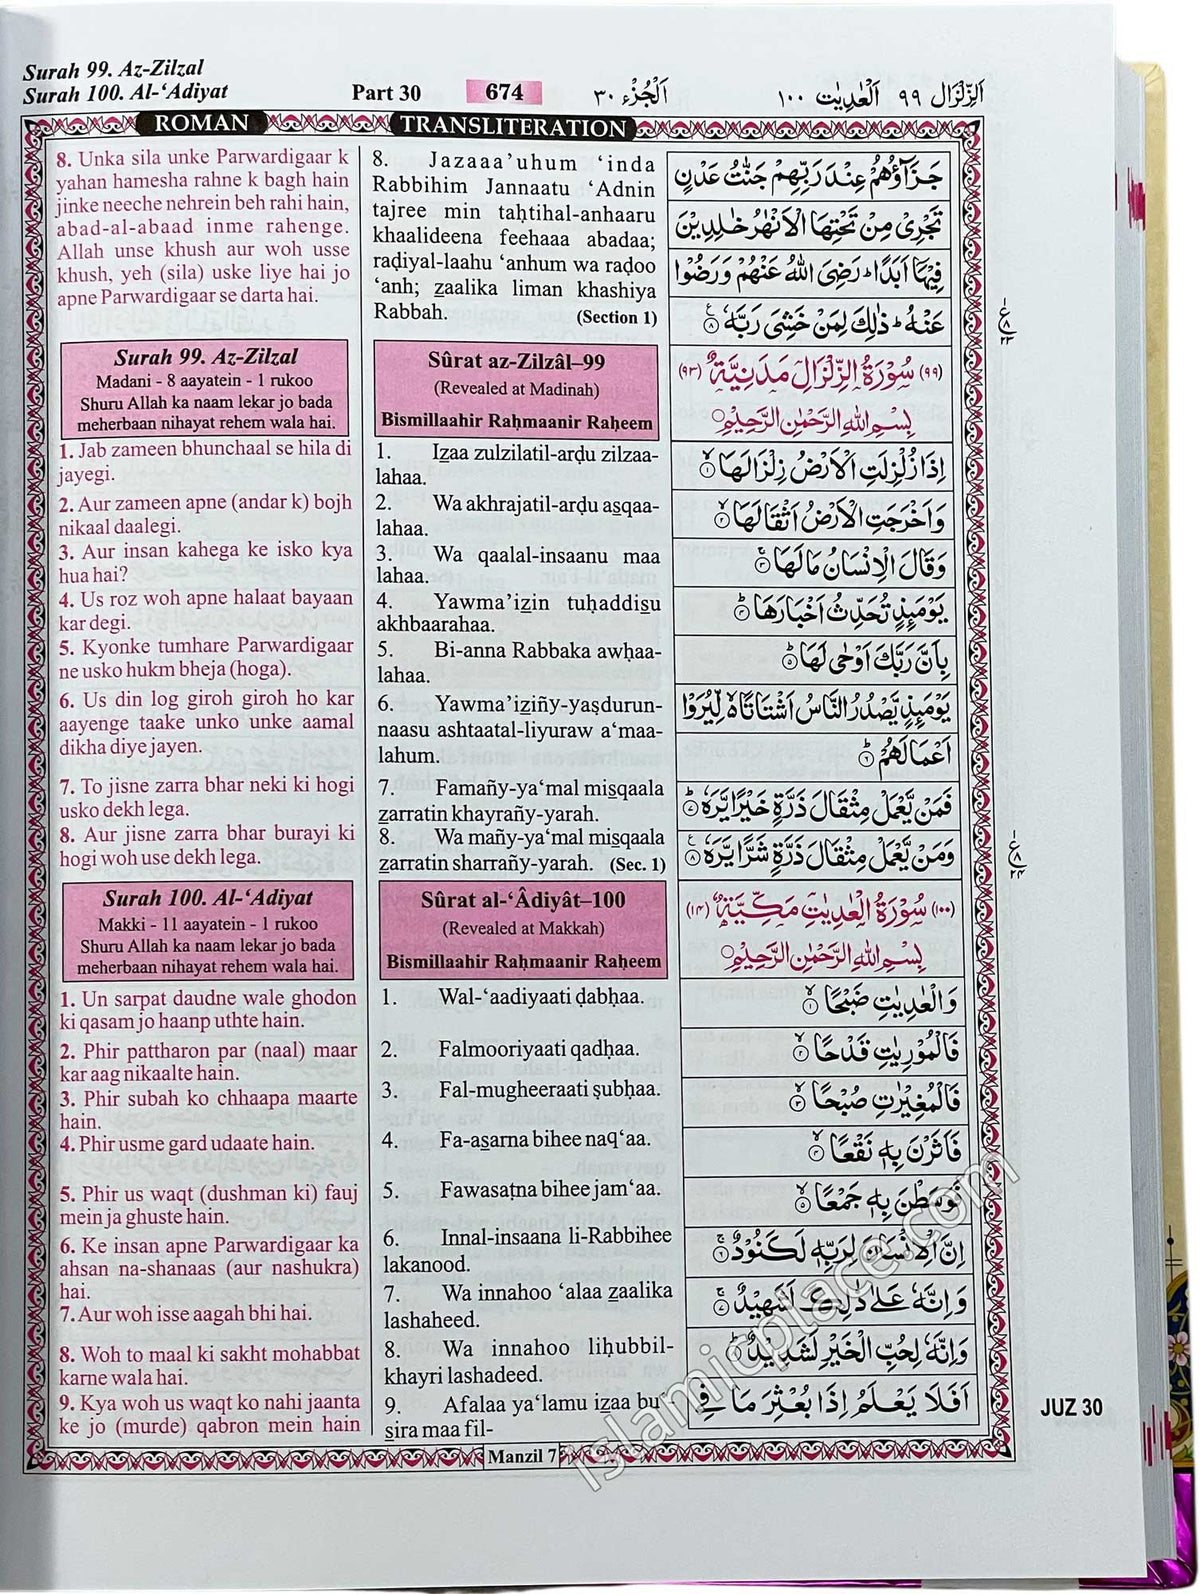 Surah 99. Az-Zilzal
Surah 100. Al-‘Adiyat
Part 30
674
اَلْجُزْء ٣٠
اَلزِّلْزَال ٩٩ اَلْعٰدِيٰت ١٠٠
ROMAN
TRANSLITERATION
8. Unka sila unke Parwardigaar k
yahan hamesha rahne k bagh hain
jinke neeche nehrein beh rahi hain,
abad-al-abaad inme rahenge.
Allah unse khush aur woh usse
khush, yeh (sila) uske liye hai jo
apne Parwardigaar se darta hai.
Surah 99. Az-Zilzal
Madani - 8 aayatein - 1 rukoo
Shuru Allah ka naam lekar jo bada
meherbaan nihayat rehem wala hai.
1. Jab zameen bhunchaal se hila di
jayegi.
2. Aur zameen apne (andar k) bojh
nikaal daalegi.
3. Aur insan kahega ke isko kya
hua hai?
4. Us roz woh apne halaat bayaan
kar degi.
5. Kyonke tumhare Parwardigaar
ne usko hukm bheja (hoga).
6. Us din log giroh giroh ho kar
aayenge taake unko unke aamal
dikha diye jayen.
7. To jisne zarra bhar neki ki hogi
usko dekh lega.
8. Aur jisne zarra bhar burayi ki
hogi woh use dekh lega.
Surah 100. Al-‘Adiyat
Makki - 11 aayatein - 1 rukoo
Shuru Allah ka naam lekar jo bada
meherbaan nihayat rehem wala hai.
1. Un sarpat daudne wale ghodon
ki qasam jo haanp uthte hain.
2. Phir pattharon par (naal) maar
kar aag nikaalte hain.
3. Phir subah ko chhaapa maarte
hain.
4. Phir usme gard udaate hain.
5. Phir us waqt (dushman ki) fauj
mein ja ghuste hain.
6. Ke insan apne Parwardigaar ka
ahsan na-shanaas (aur nashukra)
hai.
7. Aur woh isse aagah bhi hai.
8. Woh to maal ki sakht mohabbat
karne wala hai.
9. Kya woh us waqt ko nahi jaanta
ke jo (murde) qabron mein hain
8. Jazaaa’uhum ‘inda
Rabbihim Jannaatu ‘Adnin
tajree min taḥtihal-anhaaru
khaalideena feehaaa abadaa;
raḍiyal-laahu ‘anhum wa raḍoo
‘anh; zaalika liman khashiya
Rabbah. (Section 1)
Sûrat az-Zilzâl–99
(Revealed at Madinah)
Bismillaahir Raḥmaanir Raḥeem
1. Izaa zulzilatil-arḍu zilzaa-
lahaa.
2. Wa akhrajatil-arḍu asqaa-
lahaa.
3. Wa qaalal-insaanu maa
lahaa.
4. Yawma’izin tuḥaddisu
akhbaarahaa.
5. Bi-anna Rabbaka awḥaa-
lahaa.
6. Yawma’iziñy-yaṣdurun-
naasu ashtaatal-liyuraw a‘maa-
lahum.
7. Famañy-ya‘mal misqaala
zarratin khayrañy-yarah.
8. Wa mañy-ya‘mal misqaala
zarratin sharrañy-yarah. (Sec. 1)
Sûrat al-‘Âdiyât–100
(Revealed at Makkah)
Bismillaahir Raḥmaanir Raḥeem
1. Wal-‘aadiyaati ḍabḥaa.
2. Falmooriyaati qadḥaa.
3. Fal-mugheeraati ṣubḥaa.
4. Fa-asarna bihee naq‘aa.
5. Fawasaṭna bihee jam‘aa.
6. Innal-insaana li-Rabbihee
lakanood.
7. Wa innahoo ‘alaa zaalika
lashaheed.
8. Wa innahoo liḥubbil-
khayri lashadeed.
9. Afalaa ya‘lamu izaa bu‘-
sira maa fil-
جَزَآؤُهُمْ عِنْدَ رَبِّهِمْ جَنّٰتُ عَدْنٍ
تَجْرِىْ مِنْ تَحْتِهَا الْاَنْهٰرُ خٰلِدِيْنَ
فِيْهَآ اَبَدًا ؕ رَضِىَ اللّٰهُ عَنْهُمْ وَ رَضُوْا
عَنْهُ ؕ ذٰلِكَ لِمَنْ خَشِىَ رَبَّهٗ ۝٨
(٩٩) سُوْرَةُ الزِّلْزَالِ مَدَنِيَّةٌ (٩٣)
بِسْمِ اللّٰهِ الرَّحْمٰنِ الرَّحِيْمِ
اِذَا زُلْزِلَتِ الْاَرْضُ زِلْزَالَهَا ۝١
وَ اَخْرَجَتِ الْاَرْضُ اَثْقَالَهَا ۝٢
وَ قَالَ الْاِنْسَانُ مَا لَهَا ۝٣
يَوْمَئِذٍ تُحَدِّثُ اَخْبَارَهَا ۝٤
بِاَنَّ رَبَّكَ اَوْحٰى لَهَا ۝٥
يَوْمَئِذٍ يَّصْدُرُ النَّاسُ اَشْتَاتًا لِّيُرَوْا
اَعْمَالَهُمْ ۝٦
فَمَنْ يَّعْمَلْ مِثْقَالَ ذَرَّةٍ خَيْرًا يَّرَهٗ ۝٧
وَ مَنْ يَّعْمَلْ مِثْقَالَ ذَرَّةٍ شَرًّا يَّرَهٗ ۝٨
(١٠٠) سُوْرَةُ الْعٰدِيٰتِ مَكِّيَّةٌ (١٤)
بِسْمِ اللّٰهِ الرَّحْمٰنِ الرَّحِيْمِ
وَ الْعٰدِيٰتِ ضَبْحًا ۝١
فَالْمُوْرِيٰتِ قَدْحًا ۝٢
فَالْمُغِيْرٰتِ صُبْحًا ۝٣
فَاَثَرْنَ بِهٖ نَقْعًا ۝٤
فَوَسَطْنَ بِهٖ جَمْعًا ۝٥
اِنَّ الْاِنْسَانَ لِرَبِّهٖ لَكَنُوْدٌ ۝٦
وَ اِنَّهٗ عَلٰى ذٰلِكَ لَشَهِيْدٌ ۝٧
وَ اِنَّهٗ لِحُبِّ الْخَيْرِ لَشَدِيْدٌ ۝٨
اَفَلَا يَعْلَمُ اِذَا بُعْثِرَ مَا فِى
Manzil 7
JUZ 30
islamicplace.com